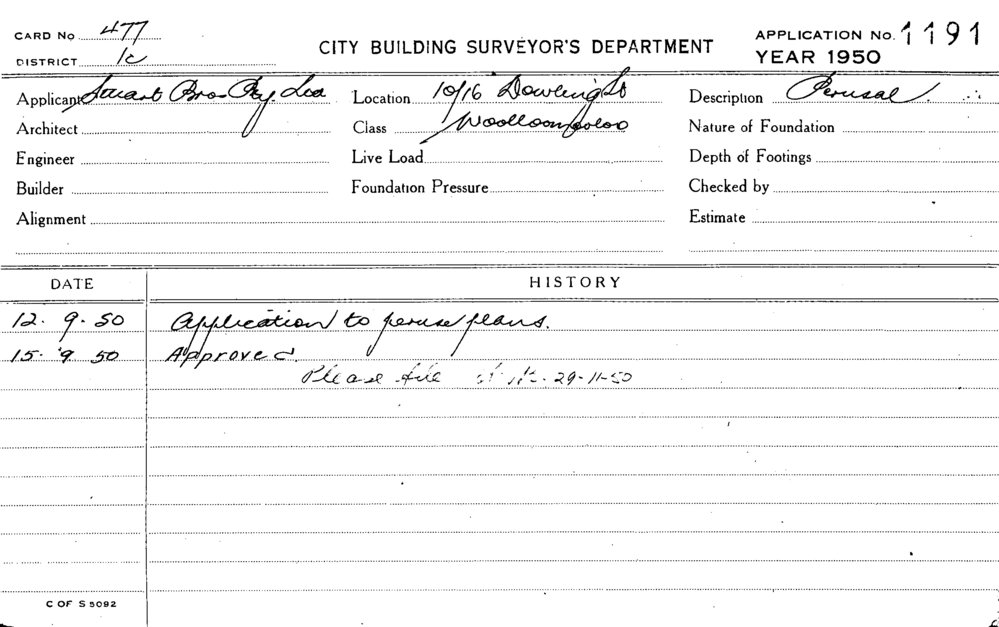 CARD No 477
DISTRICT 1c
CITY BUILDING SURVEYOR'S DEPARTMENT
APPLICATION No. 1191
YEAR 1950
Applicant Stuart Bros Pty. Ltd
Location 10/16 Dowling St
Description Perusal.
Architect
Class Woolloomooloo
Nature of Foundation
Engineer
Live Load
Depth of Footings
Builder
Foundation Pressure
Checked by
Alignment
Estimate
DATE HISTORY
12. 9. 50 Application to peruse plans.
15. 9 50 Approved.
Please file 29-11-50
C OF S 5092